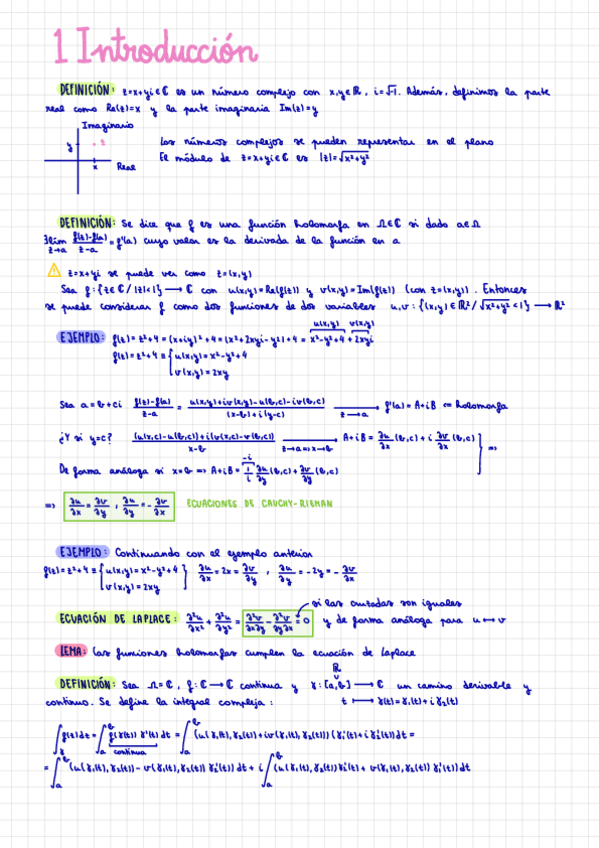 1 Introducción
DEFINICIÓN: z=x+yi∈ℂ es un número complejo con x,y∈ℝ, i=√-1. Además, definimos la parte
real como Re(z)=x y la parte imaginaria Im(z)=y
Imaginario
y z
x Real
Los números complejos se pueden representar en el plano
El módulo de z=x+yi∈ℂ es |z|=√x²+y²
DEFINICIÓN: Se dice que f es una función holomorfa en Ω∈ℂ si dado a∈Ω
∃lim z→a (f(z)-f(a))/(z-a) = f'(a) cuyo valor es la derivada de la función en a
⚠ z=x+yi se puede ver como z=(x,y)
Sea f:{z∈ℂ/|z|<1}→ℂ con u(x,y)=Re(f(z)) y v(x,y)=Im(f(z)) (con z=(x,y)). Entonces
se puede considerar f como dos funciones de dos variables u,v:{(x,y)∈ℝ²/√x²+y²<1}→ℝ²
u(x,y) v(x,y)
EJEMPLO: f(z)=z²+4=(x+iy)²+4=(x²+2xyi-y²)+4=x²-y²+4+2xyi
f(z)=z²+4≡{u(x,y)=x²-y²+4
v(x,y)=2xy
Sea a=b+ci (f(z)-f(a))/(z-a) = (u(x,y)+iv(x,y)-u(b,c)-iv(b,c))/((x-b)+i(y-c)) → z→a f'(a)=A+iB ⇐ holomorfa
¿Y si y=c? ((u(x,c)-u(b,c))+i(v(x,c)-v(b,c)))/(x-b) → z→a⇒x→b A+iB = ∂u/∂x (b,c) + i ∂v/∂x (b,c) } ⇒
-i
De forma análoga si x=b ⇒ A+iB = 1/i ∂u/∂y (b,c) + ∂v/∂y (b,c)
⇒ ∂u/∂x = ∂v/∂y , ∂u/∂y = -∂v/∂x ECUACIONES DE CAUCHY-RIEMAN
EJEMPLO: Continuando con el ejemplo anterior
f(z)=z²+4≡{u(x,y)=x²-y²+4 } ∂u/∂x = 2x = ∂v/∂y , ∂u/∂y = -2y = -∂v/∂x
v(x,y)=2xy
si las cruzadas son iguales
ECUACIÓN DE LAPLACE: ∂²u/∂x² + ∂²u/∂y² = ∂²v/∂x∂y - ∂²v/∂y∂x = 0 y de forma análoga para u↔v
LEMA: Las funciones holomorfas cumplen la ecuación de Laplace
ℝ
∪
DEFINICIÓN: Sea Ω=ℂ, f:ℂ→ℂ continua y γ:[a,b]→ℂ un camino derivable y
continuo. Se define la integral compleja: t↦γ(t)=γ₁(t)+iγ₂(t)
∫γ f(z)dz = ∫ₐᵇ f(γ(t)) γ'(t) dt = ∫ₐᵇ (u(γ₁(t),γ₂(t))+iv(γ₁(t),γ₂(t))) (γ₁'(t)+iγ₂'(t)) dt =
continua
= ∫ₐᵇ (u(γ₁(t),γ₂(t)) - v(γ₁(t),γ₂(t)) γ₂'(t)) dt + i ∫ₐᵇ (u(γ₁(t),γ₂(t))γ₂'(t) + v(γ₁(t),γ₂(t)) γ₁'(t)) dt